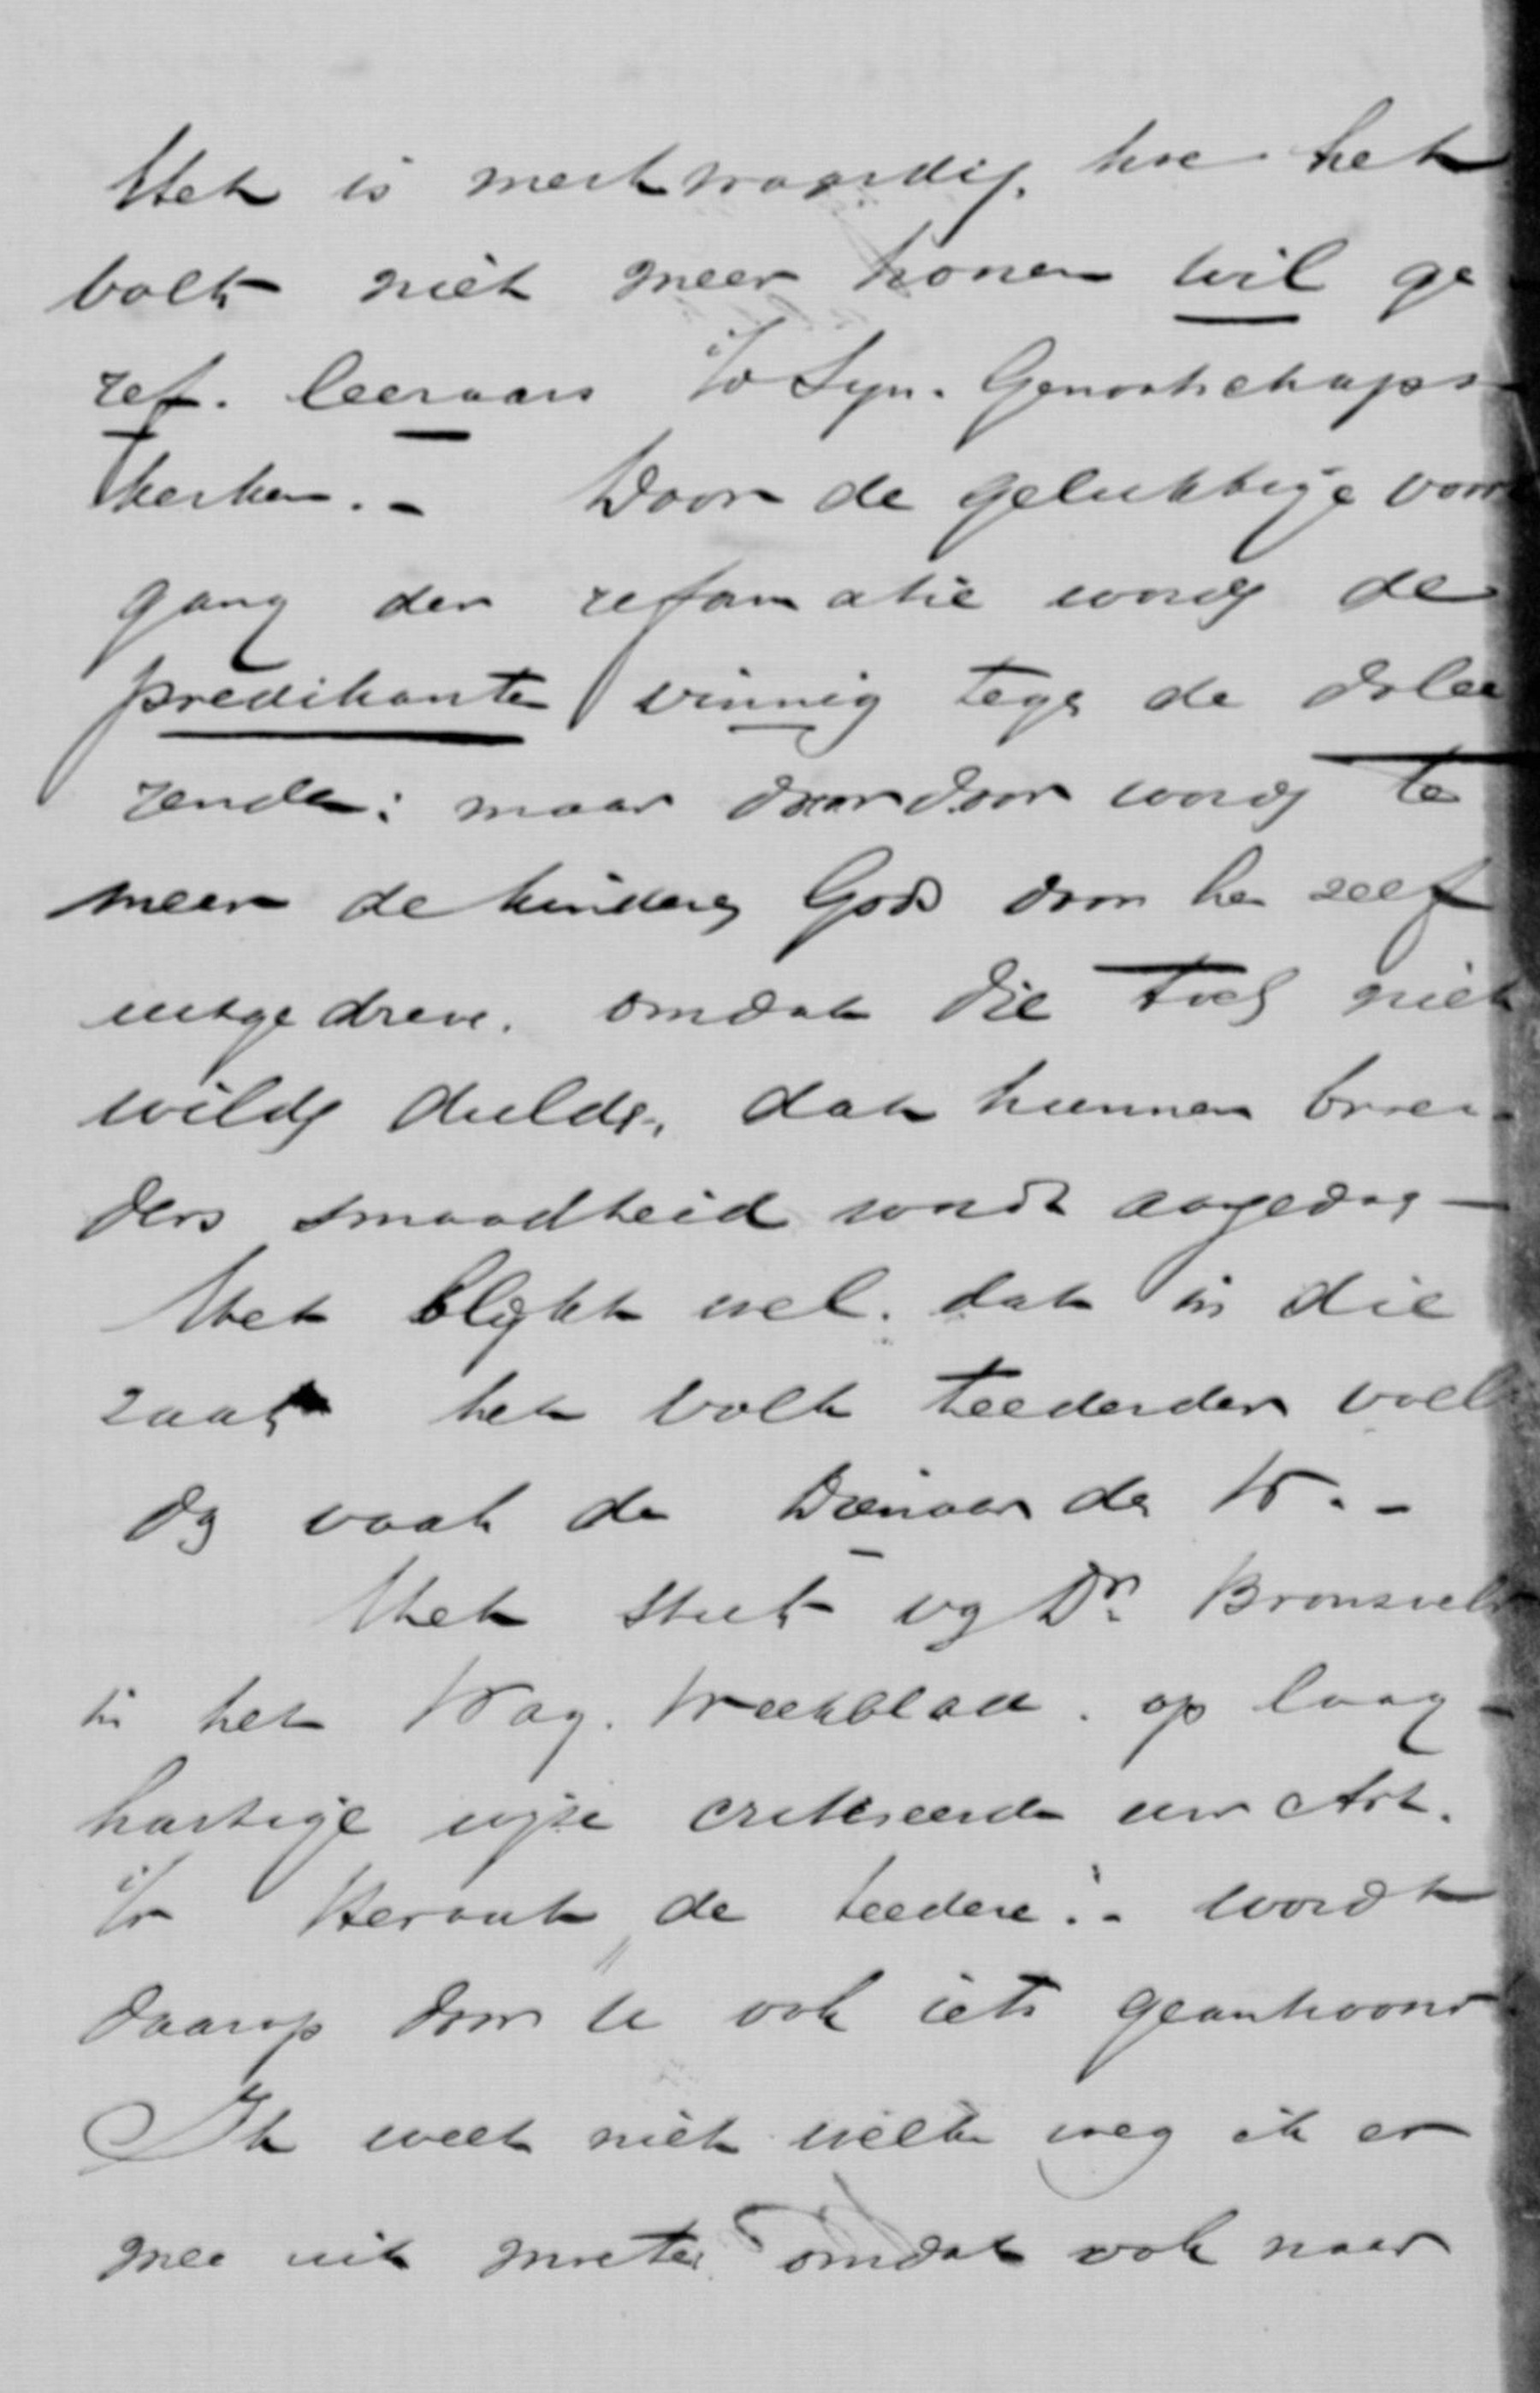 Het is merkwaardig. hoe het
volk niet meer honen wil ge
ref. leeraars i/d Syn. Genootschaps-
kerken. - Door de gelukkige voor
gang der reformatie wordg de
predikanten vinnig tegg de dolee
rende: maar daardoor wordg te
meer de kinderg Gods door hen zelf
uitgedreve. omdat die toch niet
wildg duldg, dat hunnen broe-
ders smaadheid wordt aagedag-
Het blijkt wel. dat in die
zaak het volk teederder voelt
dg vaak de Dienaar des W. -
Het stuk vg Dr. Bronsveld
in het Wag. Weekblad. op laag-
hartige wijze critiseerde uw Art.
i/d Heraut de teedere:- wordt
daarop door U ook iets geantwoord
Ik weet niet welke weg ik er
mee uit moeten omdat ook naar